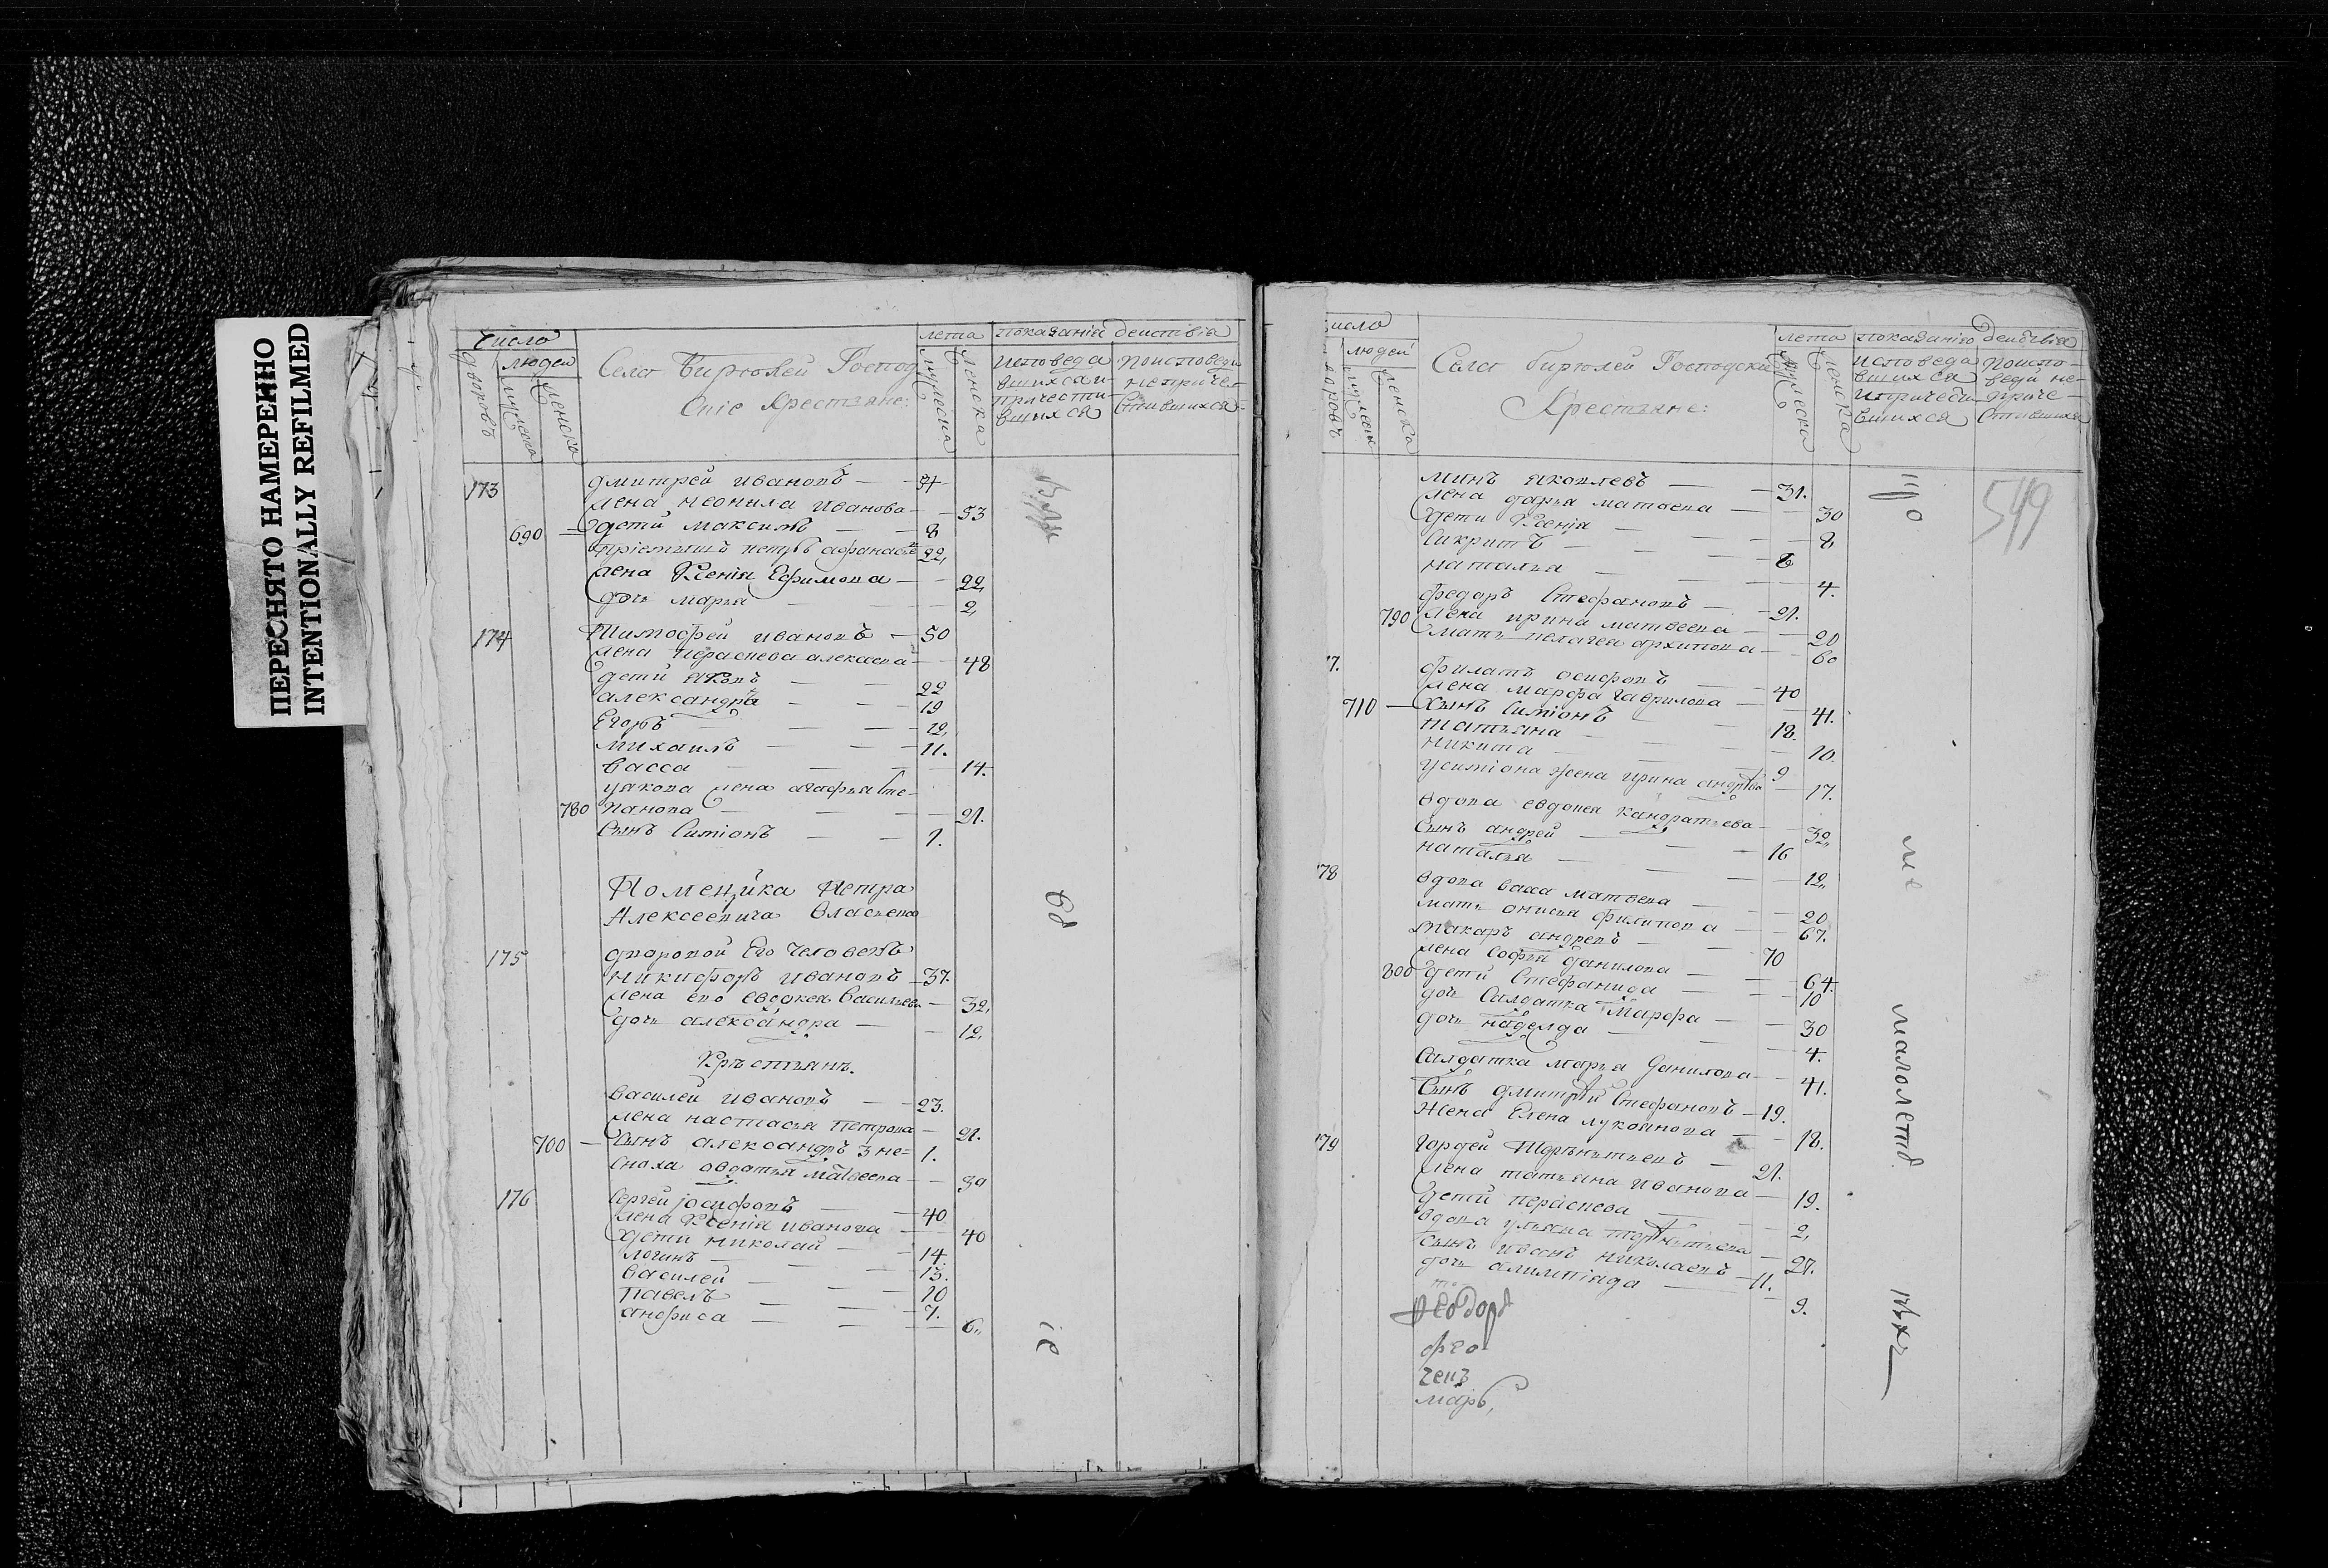 ПЕРЕСНЯТО НАМЕРЕННО
INTENTIONALLY REFILMED
Число
людей
лета
показаніи деиствіа
дворовъ
мужеска
женска
Село Бирюлей Господ
скіе Крестьяне:
мужеска
женска
исповеда
вшихся и
причасти
вшыхся
поисповеди
неприча
стившихся
173 дмитрей ивановъ — 54
жена неонила Иванова — 53
690 дети Максимъ — 8
пріемышъ петръ афанасье 22
жена Ксенія Ефимова — 22
дочь марья — 2
174 Тимофей ивановъ — 50
жена Параскева алексева — 48
дети Яковъ — 22
александра — 19
Егоръ — 12
михаилъ — 11.
васса — 14.
уякова жена агафья Сте-
780 панова — 21.
Сынъ Симіонъ — 1.
Помещика Петра
Алексеевича Власьева
175 дворовой Его Человекъ
никифоръ ивановъ — 37.
жена его евдокея Васильева — 32
дочь александра — 12
Крестьянъ.
василей ивановъ — 23.
жена настасья петрова — 21.
700 — Сынъ александръ 1.
Сноха авдотья матвеева — 30
176 Сергей іосифовъ — 40
жена Ксенія иванова — 40
дети николай — 14.
логинъ — 13.
василей — 10
павелъ — 7.
анфиса — 6
число
людей
лета
показаніо деиствіа
дворовъ
мужеска
женска
Села Бирюлей Господски
Крестьяне:
мужеска
женска
исповеда
вшихся
ипричасти
вшихся
поиспо-
веди не-
приче-
стившихся
549
минъ яковлевъ — 31.
жена дарья матвева — 30
дети Ксенія — 8
Сикритъ — 6
наталья — 4.
федоръ Стефановъ — 21.
790 жена ирина матвеева — 20
мать пелагея архипова — 60
7. филатъ осифовъ — 40
жена марфа гаврилова — 41.
710 — Сынъ Симіонъ — 18.
татьяна — 10.
никита — 9
усиміона жена ирина андрева — 17.
вдова евдокея кандратьева — 32
Сынъ андрей — 16
наталья — 12
78 вдова васса матвева — 20
мать анисья филипова — 67.
Макаръ андревъ — 70
жена софья данилова — 64.
800 дети Стефанида — 10
дочь Салдатка Марфа — 30
дочь надежда — 4.
Салдатка марья данилова — 41.
Сынъ дмитрій Стефановъ — 19.
Жена Елена лукоянова — 18.
79 Гордей Терентьевъ — 21.
жена татьяна иванова — 19.
дети параскева — 2
вдова ульяна терентьева — 27.
сынъ иванъ николаевъ — 11.
дочь алимпіада — 9.
Феодоръ
фео
малолетъ